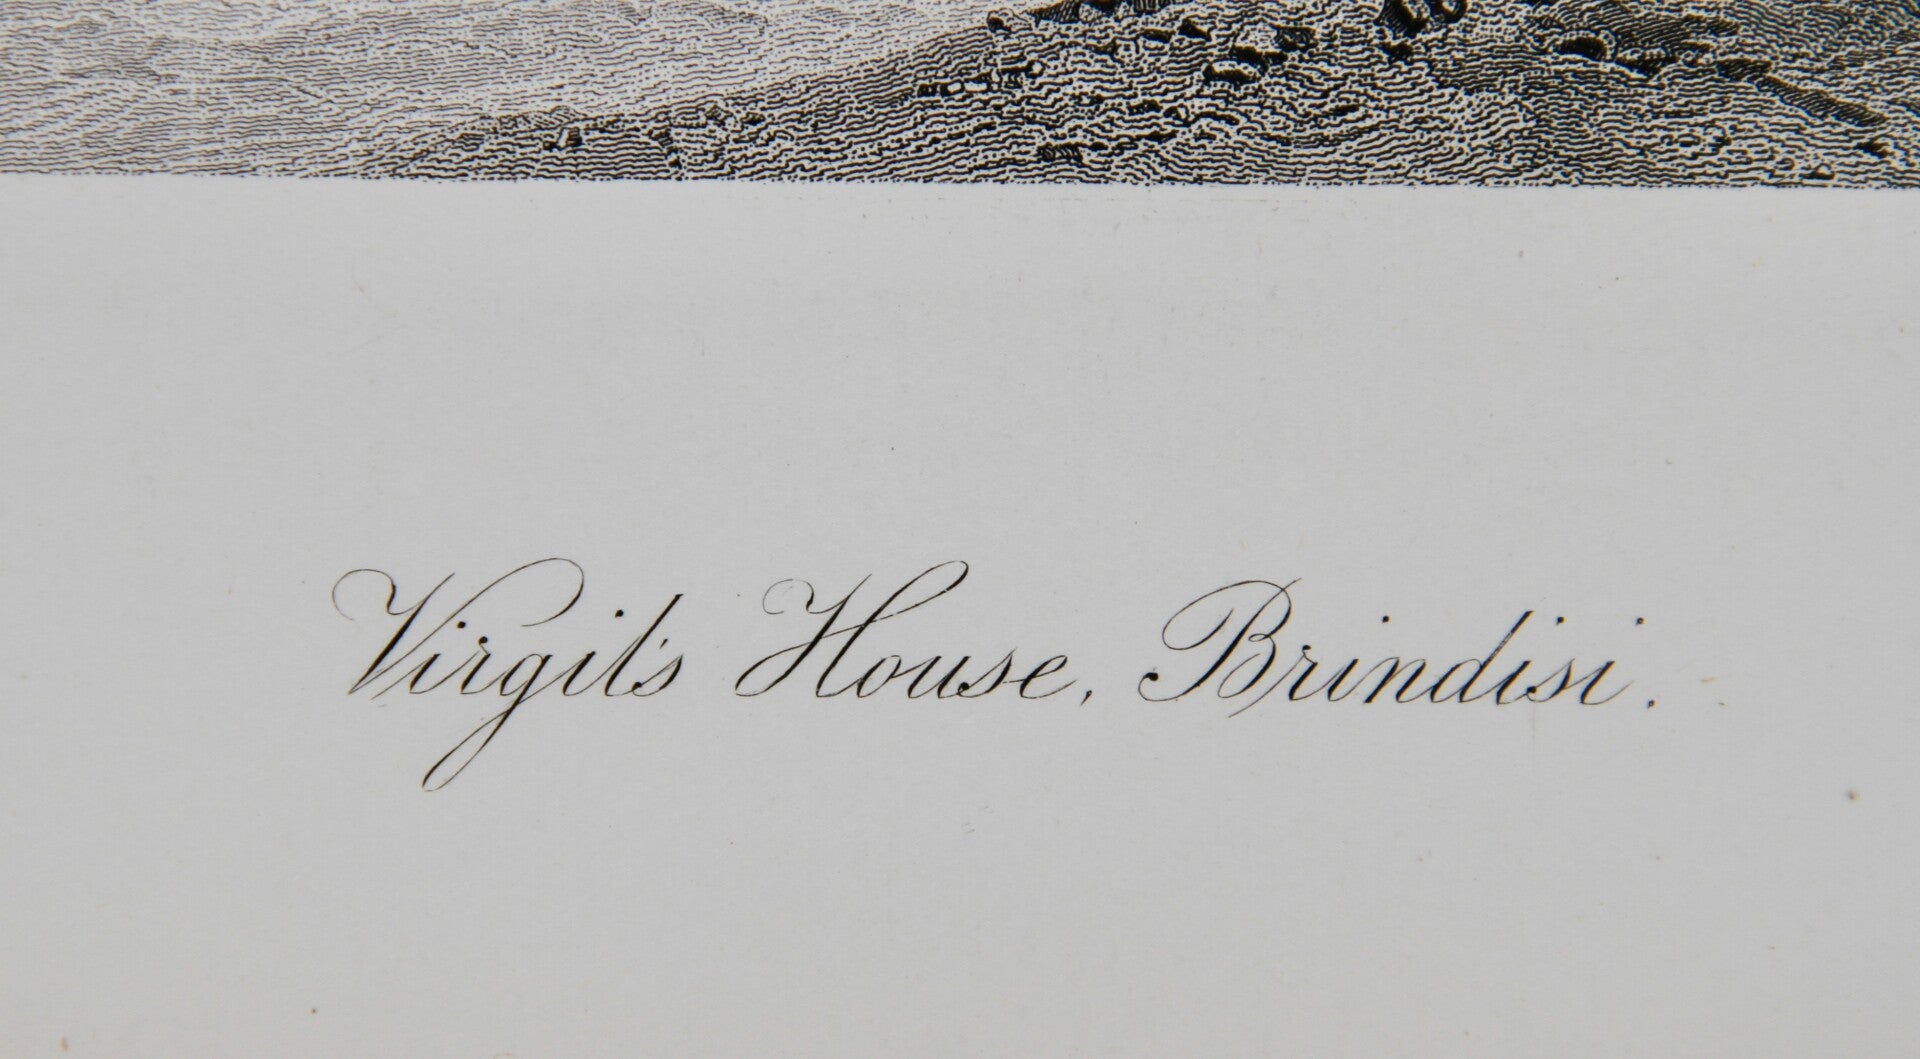 Virgil's House, Brindisi.